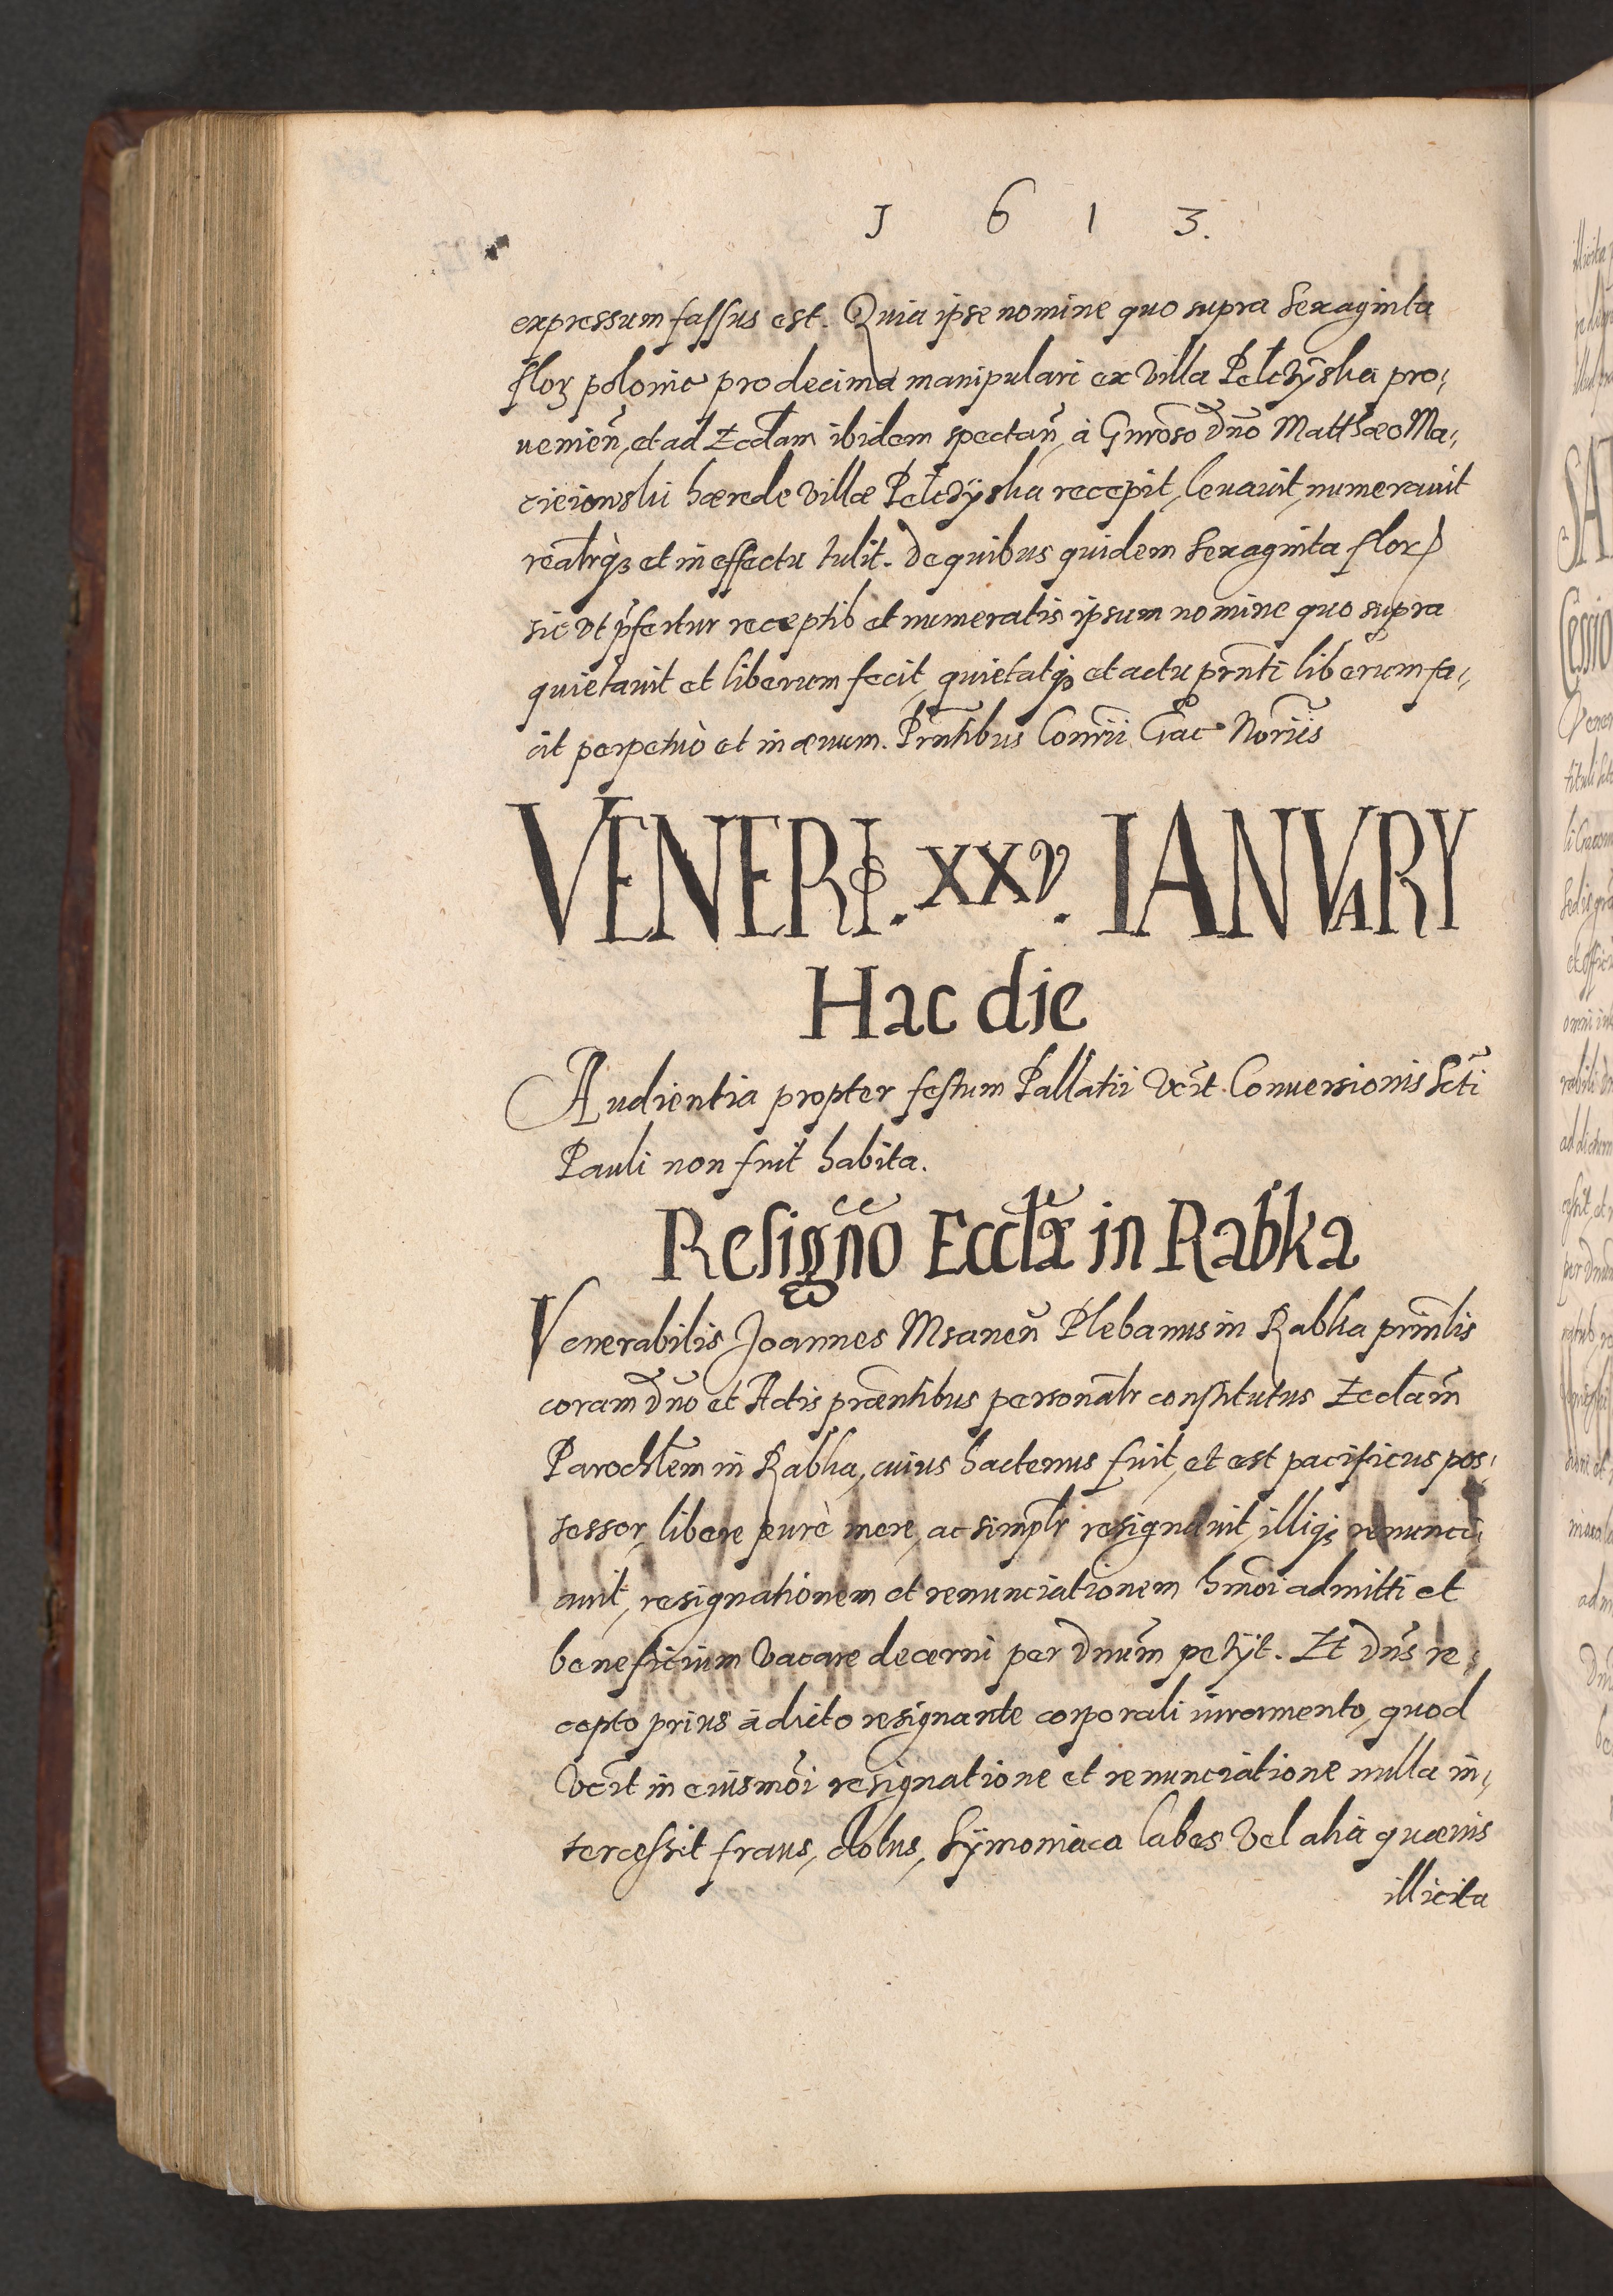 1 6 1 3.
expressum fassus est. Quia ipse nomine quo supra Sexaginta
flor polonic pro decima manipulari ex Villa Pełcżyska pro,
uenien̄, et ad Eccłam ibidem spectan̄, à Gnroso Dño Matthæo Ma,
cieiowski hærede Villæ Pełcżyska recepit, leuauit, numerauit
realrq3 et in effectu tulit. De quibus quidem Sexaginta flor
sic Vt p̄fertur receptib et numeratis ipsum nomine quo supra
quietauit et liberum fecit, quietatq3 et actu prnti liberum fa,
cit perpetuò et in æuum. Prntibus Comrii Crac Noriis
VENERIS. XXV. IANVARY
Hac die
Audientia propter festum Pallatii Vczt Conuersionis Scti
Pauli non fuit habita.
Resigno Eccłæ in Rabka
Venerabilis Joannes Msanen̄ Plebanus in Rabka prinlis
coram Dño et Actis præntibus personalr constitutus Eccłam
Parochłem in Rabka, cuius hactenus fuit, et est pacificus pos,
sessor, libere purè mere, ac simplr resignauit, illiq3 renunci,
auit, resignationem et renunciationem hmoi admitti et
beneficium Vacare decerni per Dnum petÿt. Et Dns re,
cepto prius à dicto resignante corporali iuramento, quod
Vczt in eiusmoi resignatione et renunciatione nulla in,
tercessit fraus, dolus, Sÿmoniaca labes Vel alia quæuis
illicita